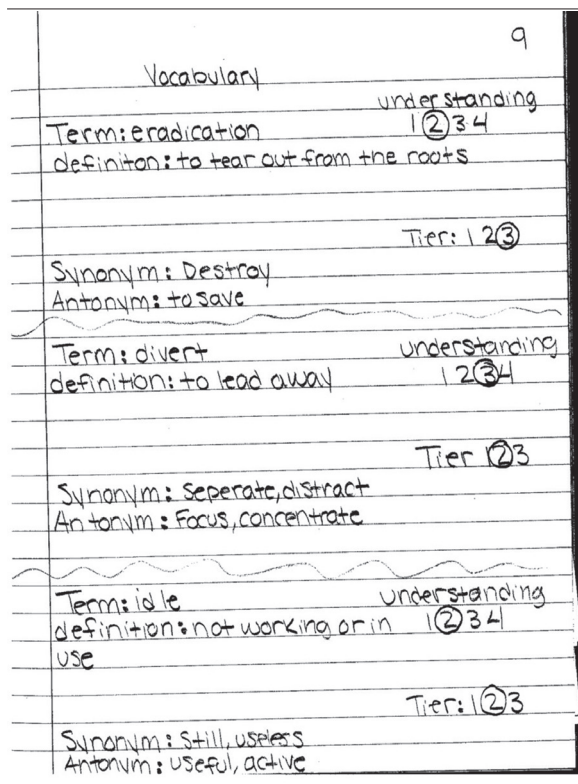 9
Vocabulary
understanding
Term: eradication 1 2 3 4
definiton: to tear out from the roots
Tier: 1 2 3
Synonym: Destroy
Antonym: to save
Term: divert understanding
definition: to lead away 1 2 3 4
Tier 1 2 3
Synonym: Seperate, distract
Antonym: Focus, concentrate
Term: idle understanding
definition: not working or in 1 2 3 4
use
Tier: 1 2 3
Synonym: Still, useless
Antonym: useful, active